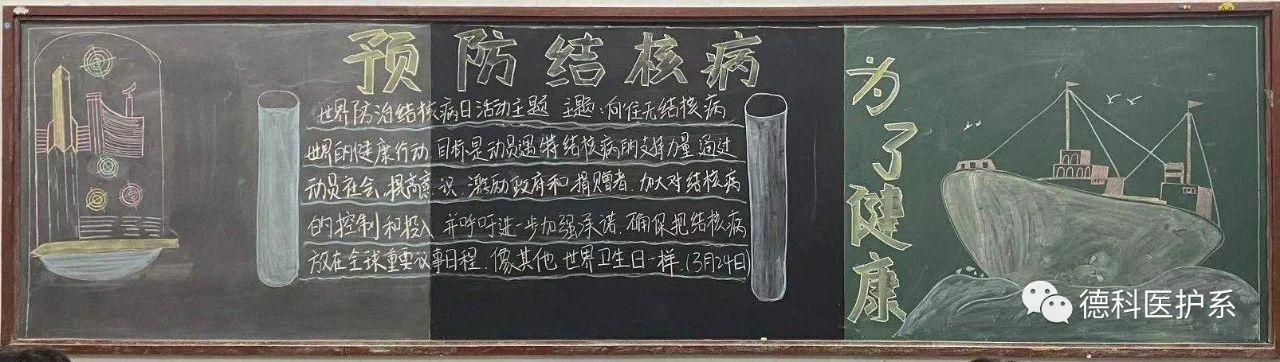 预防结核病
世界防治结核病日活动主题 主题:向往无结核病
世界的健康行动,目标是动员遏特结核病的支持力量,通过
动员社会、提高意识、激励政府和捐赠者,加大对结核病
的控制和投入,并呼吁进一步加强承诺,确保把结核病
放在全球重要议事日程,像其他世界卫生日一样.(3月24日)
为了健康
德科医护系